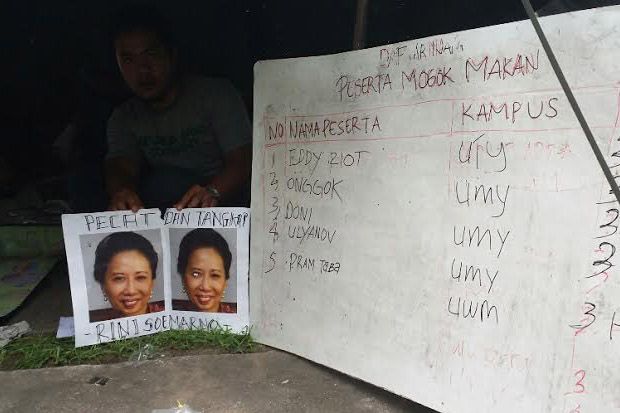 PECAT DAN TANGKAP
- RINI SOEMARNO -
PESERTA MOGOK MAKAN
NO NAMA PESERTA KAMPUS
1 EDDY RIOT UTY
2 ONGGOK UMY
3 DONI UMY
4 ULYANOV UMY
5 PRAM TOBA UWM